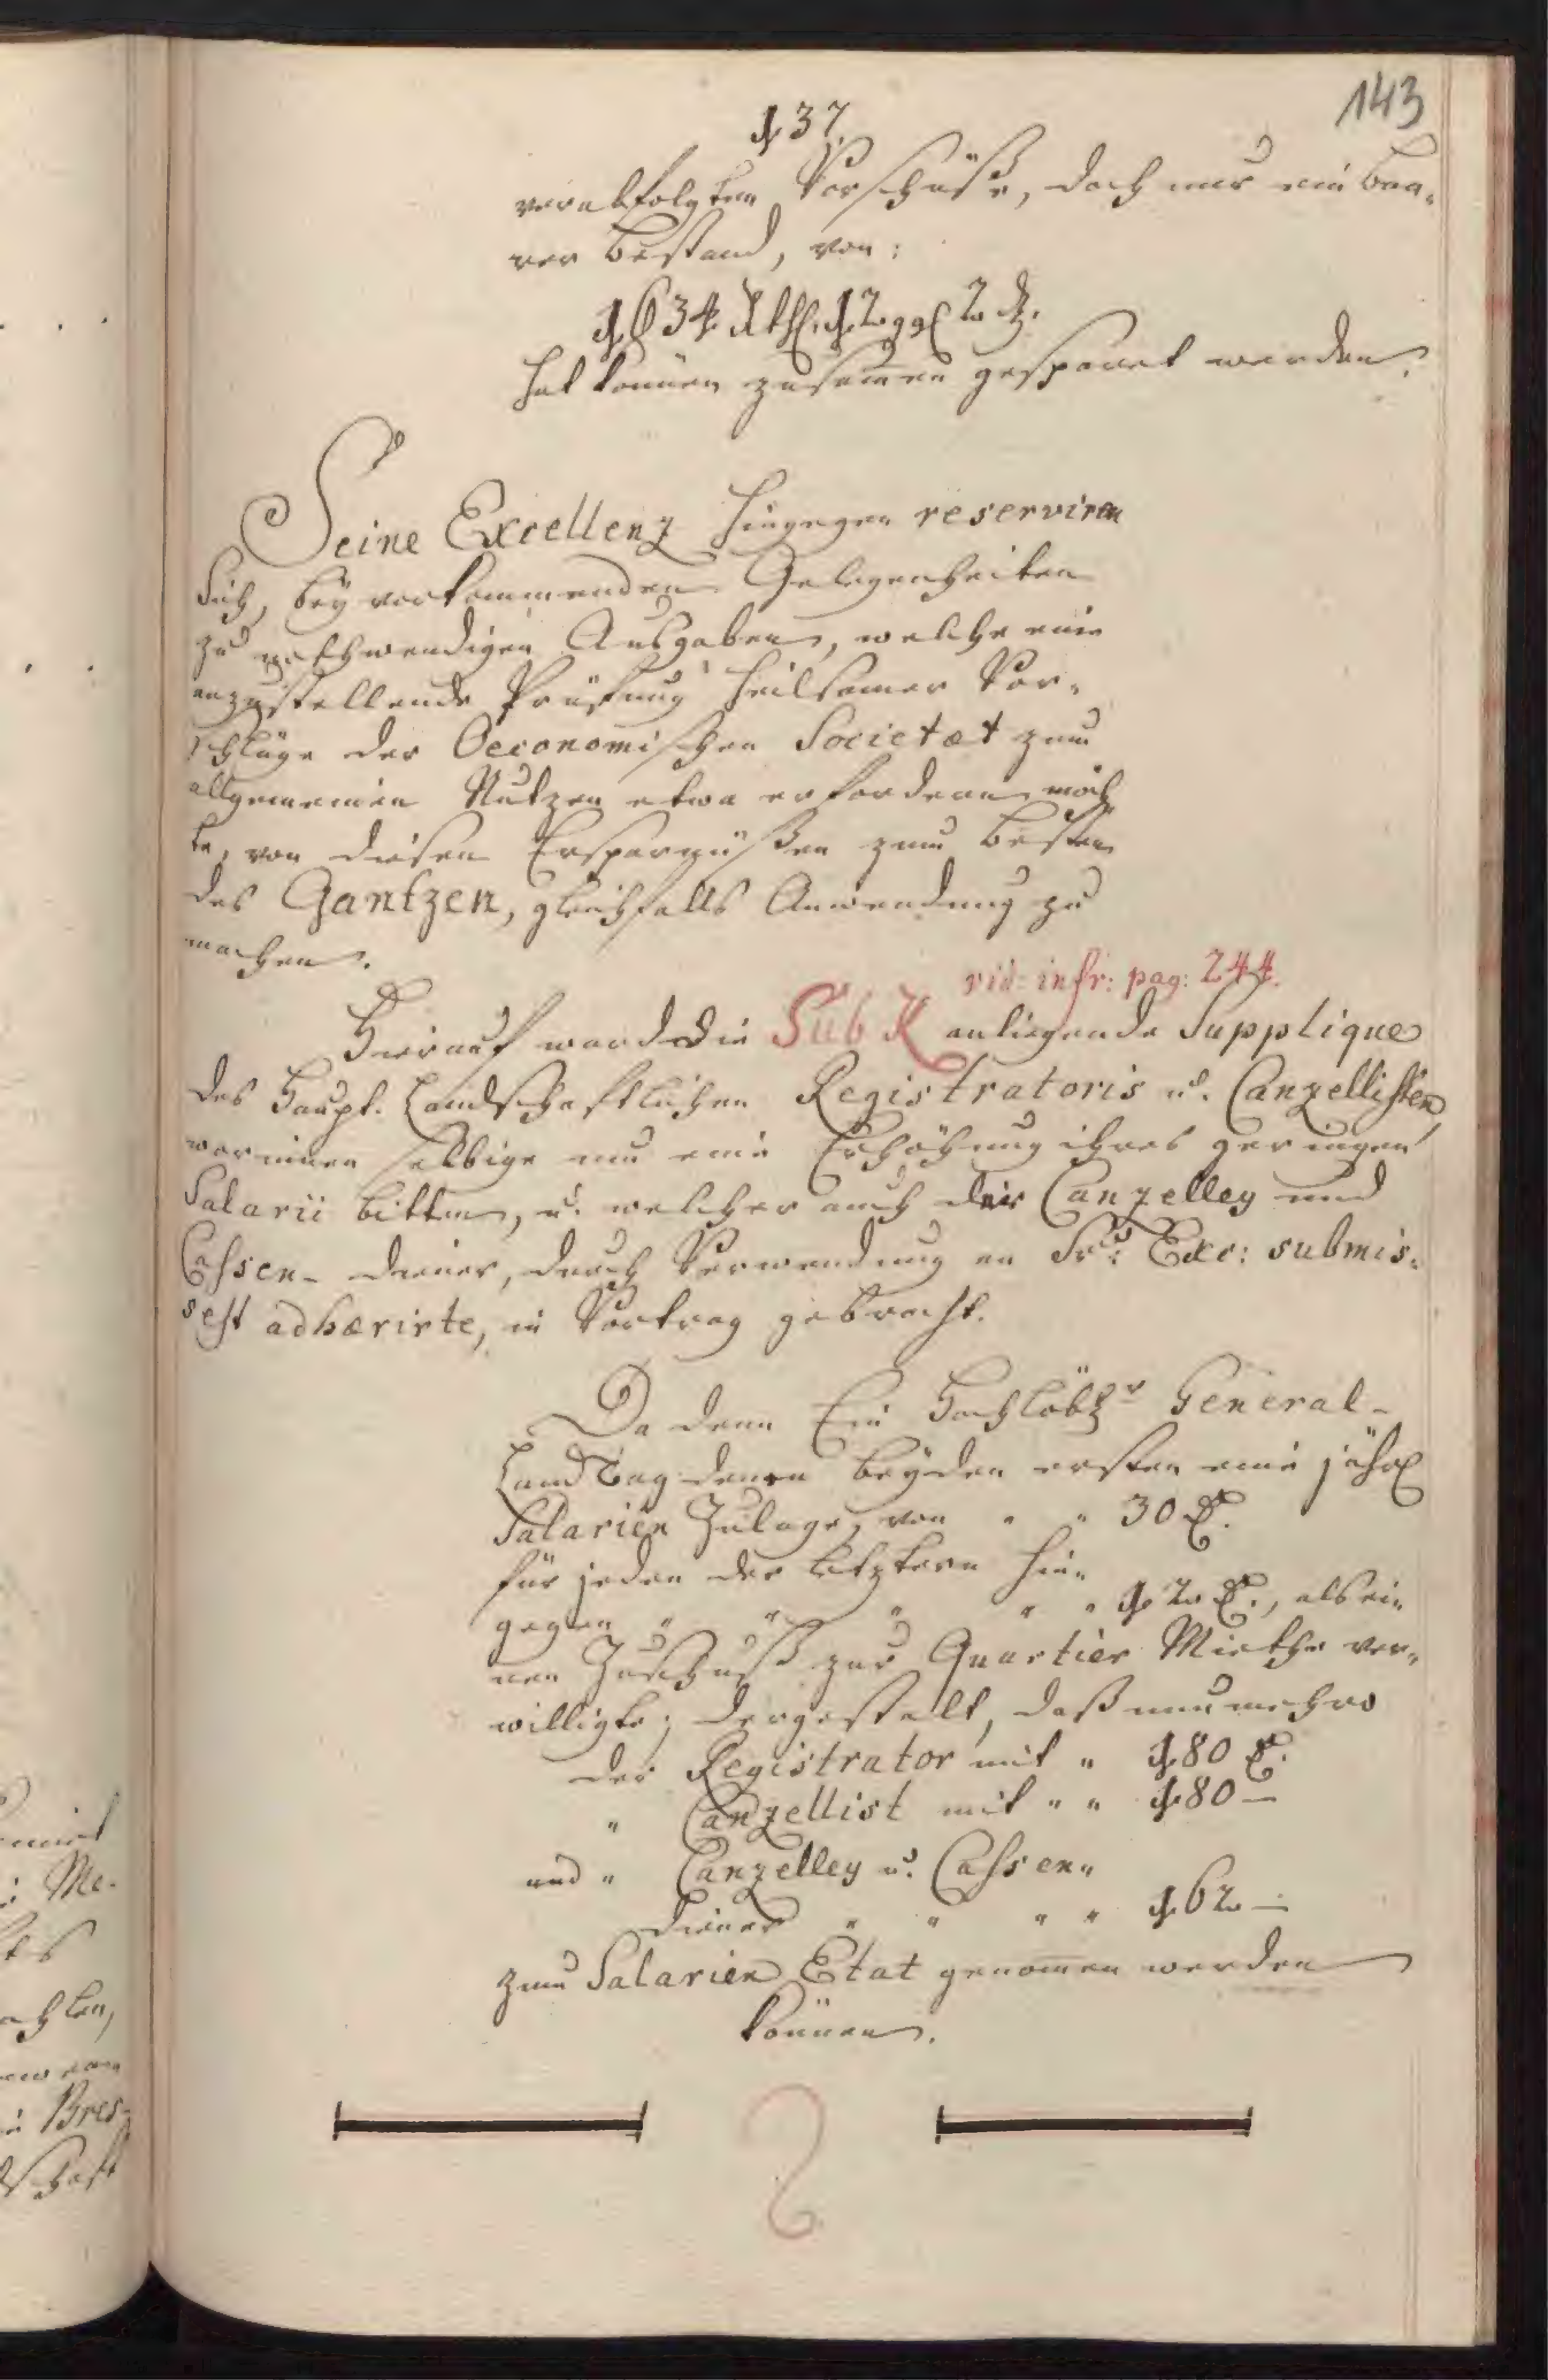 143
137.
verabfolgten Vorschüße, doch nur ein baa-
rer Bestand, von:
1634 Rthl. 12 ggl 2 d.
hat können zusam̅en gesparet werden.
Seine Excellenz hingegen reserviren
Sich, bey vorkommenden Gelegenheiten
zu nothwendigen Ausgaben, welche eine
anzustellende Prüfung heilsamer Vor-
schläge der Oeconomischen Societæt zum
allgemeinen Nutzen etwa erfordern möch
te, von diesen Ersparnüßen zum Besten
des Gantzen, gleichfalls Anwendung zu
machen.
vid: infr: pag: 244.
Hierauf ward die Sub K anliegende Supplique
des Haupt-Landschaftlichen Registratoris u. Canzellisten,
worinnen selbige um eine Erhöhung ihres geringen
Salarii bitten, u. welcher auch der Canzelley und
Cassen-diener, durch Verwendung an Sr: Exc: submis-
sest adhærirte, in Vortrag gebracht.
Da denn Ein Hochlöbl.r General-
LandTag denen beyden ersten eine jährl
Salarien Zulage, von " " 30 R.
für jeden der letztern hin-
gegen " " " " " 12 R., als ei-
nen Zuschuß zur Quartier Miethe ver-
willigte; dergestalt, daß nunmehro
der Registrator mit " 180 R.
" Canzellist mit " " 180 —
und " Canzelley u. Cassen-
diener " " " " 162 —
zum Salarien Etat genom̅en werden
können.